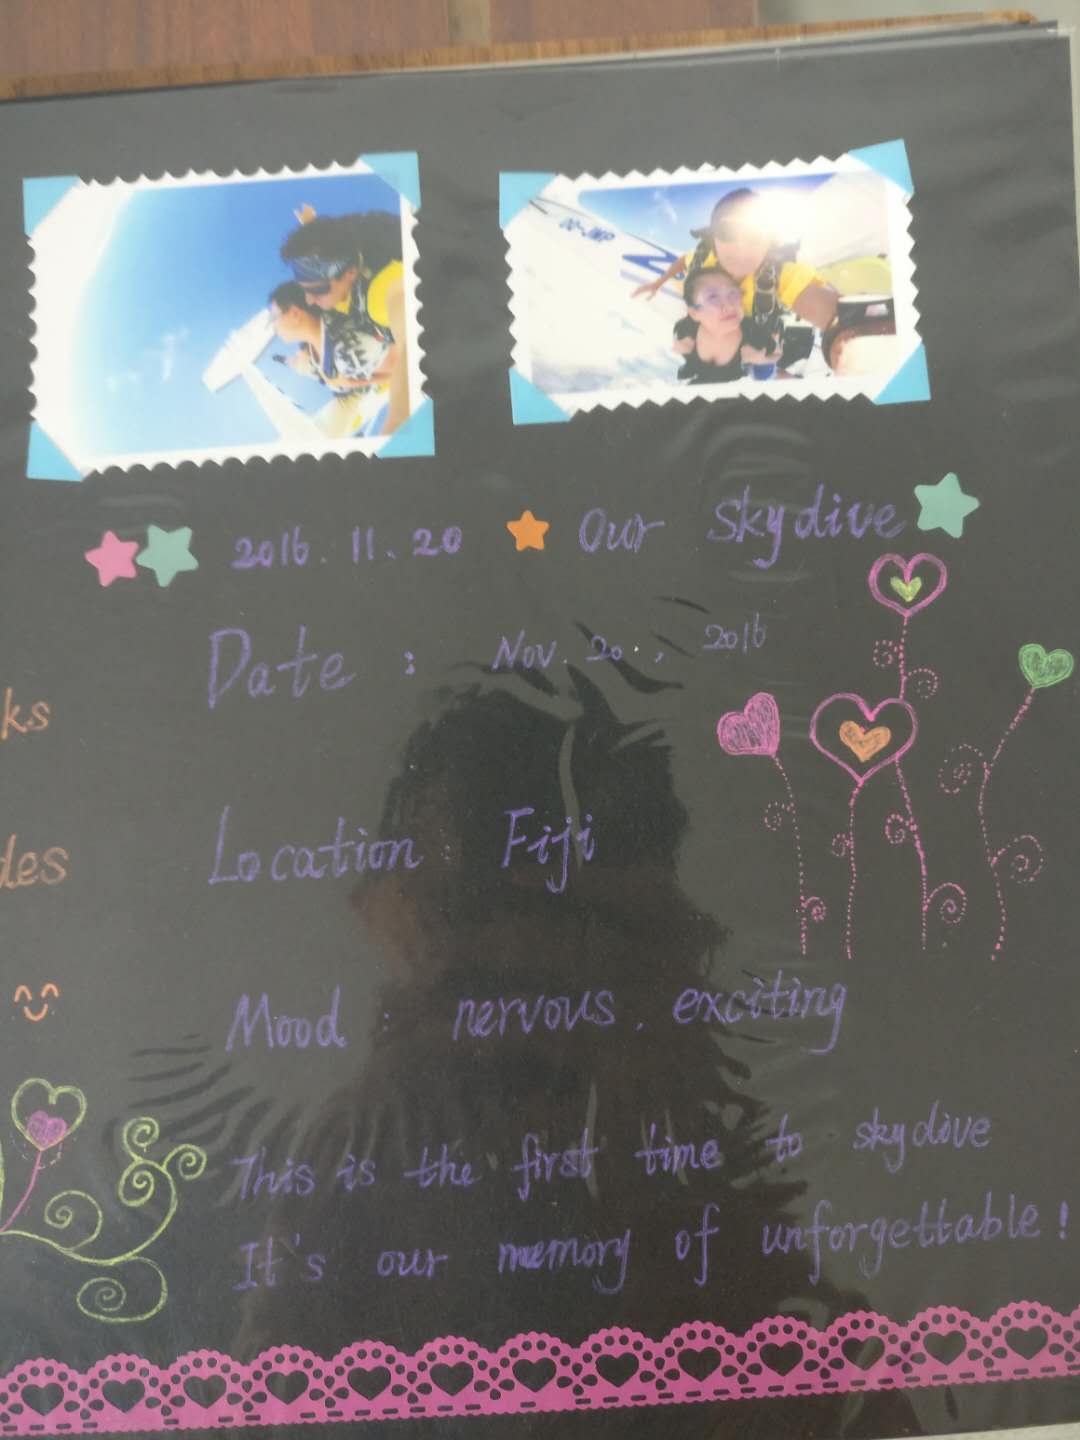 DQ-JMP
2016. 11. 20 Our skydive
Date : Nov. 20. , 2016
ks
Location : Fiji
des
Mood : nervous. exciting
This is the first time to skydive
It's our memory of unforgettable!